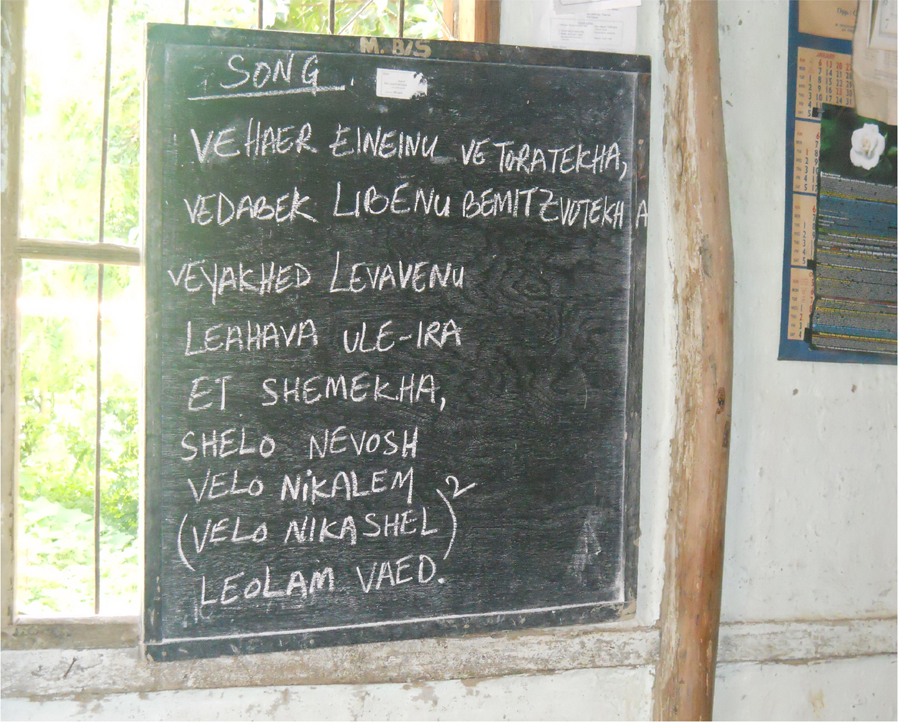 M. B/S
SONG
VEHAER EINEINU VE TORATEKHA,
VEDABEK LIBENU BEMITZVOTEKHA
VEYAKHED LEVAVENU
LEAHAVA ULE-IRA
ET SHEMEKHA,
SHELO NEVOSH
VELO NIKALEM
(VELO NIKASHEL)2
LEOLAM VAED.